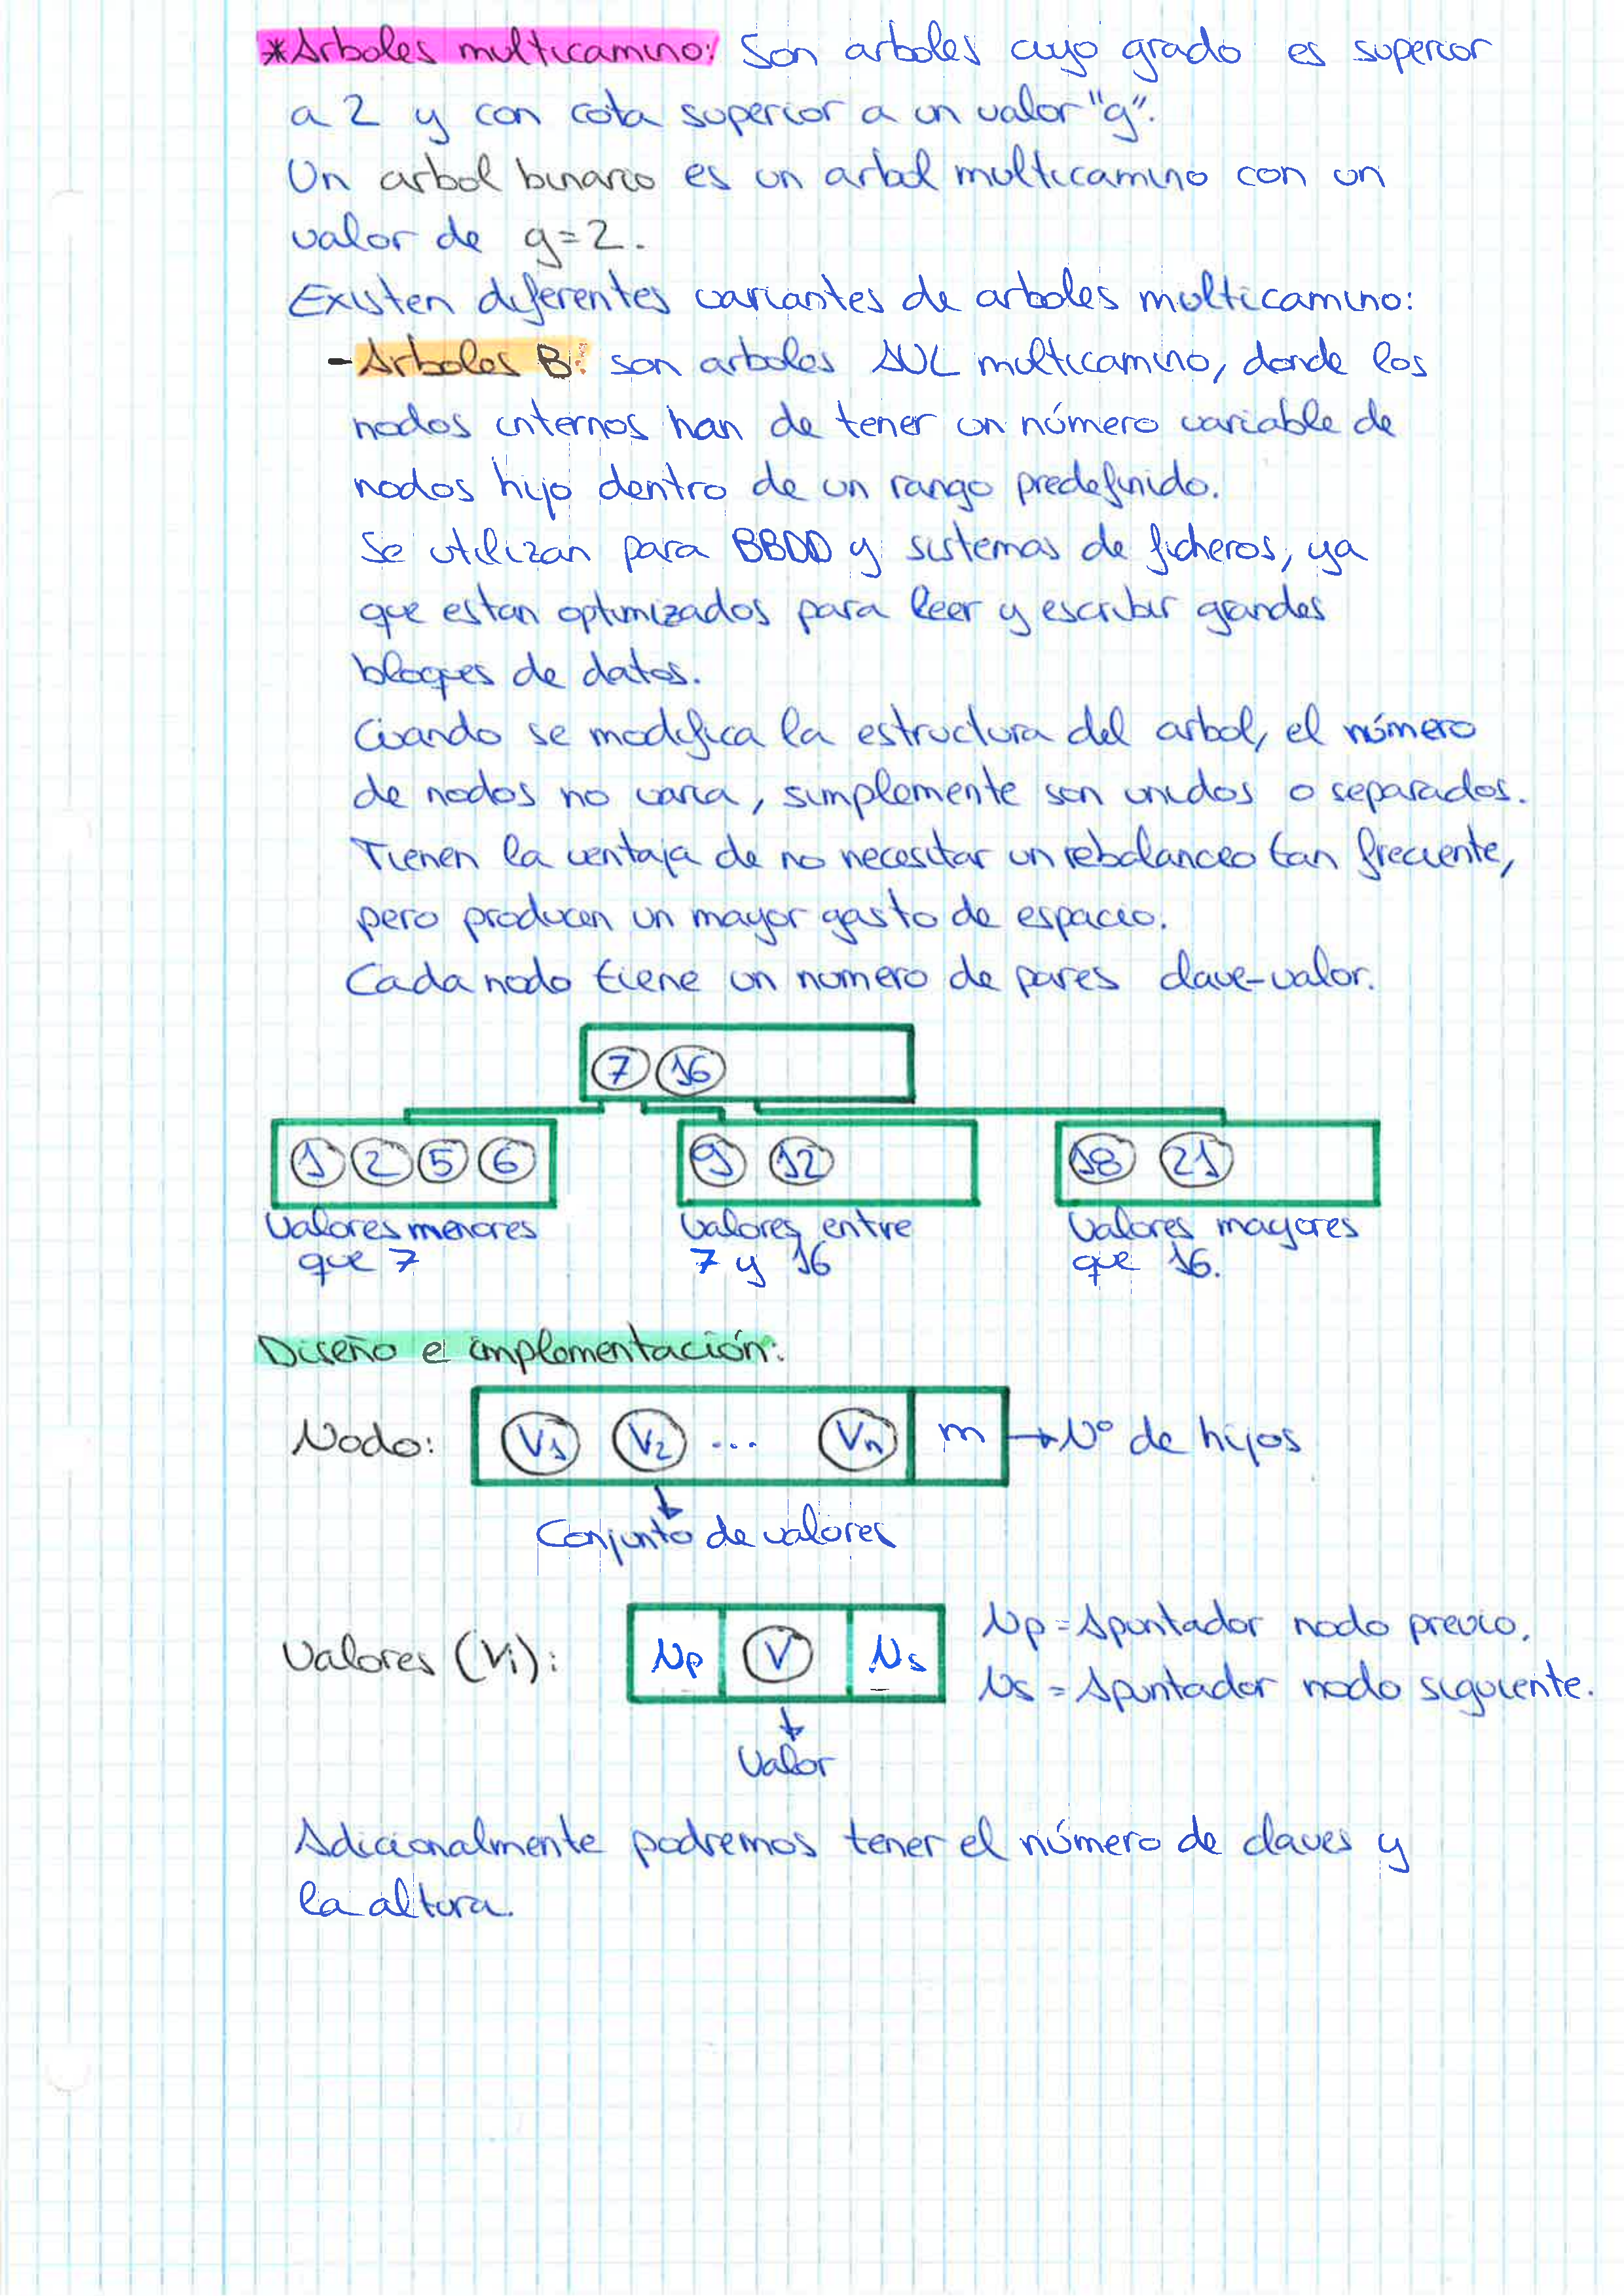 *Arboles multicamino: Son arboles cuyo grado es superior
a 2 y con cota superior a un valor "g".
Un arbol binario es un arbol multicamino con un
valor de g=2.
Existen diferentes variantes de arboles multicamino:
- Arboles B: son arboles AVL multicamino, donde los
nodos internos han de tener un número variable de
nodos hijo dentro de un rango predefinido.
Se utilizan para BBDD y sistemas de ficheros, ya
que estan optimizados para leer y escribir grandes
bloques de datos.
Cuando se modifica la estructura del arbol, el número
de nodos no varia, simplemente son unidos o separados.
Tienen la ventaja de no necesitar un rebalanceo tan frecuente,
pero producen un mayor gasto de espacio.
Cada nodo tiene un numero de pares clave-valor.
7 16
1 2 5 6 9 12 18 21
Valores menores que 7
Valores entre 7 y 16
Valores mayores que 16.
Diseño e implementación:
Nodo: V1 V2 ... Vn m → Nº de hijos
Conjunto de valores
Valores (Vi): Np V Ns
Np = Apuntador nodo previo.
Ns = Apuntador nodo siguiente.
Valor
Adicionalmente podremos tener el número de claves y
la altura.